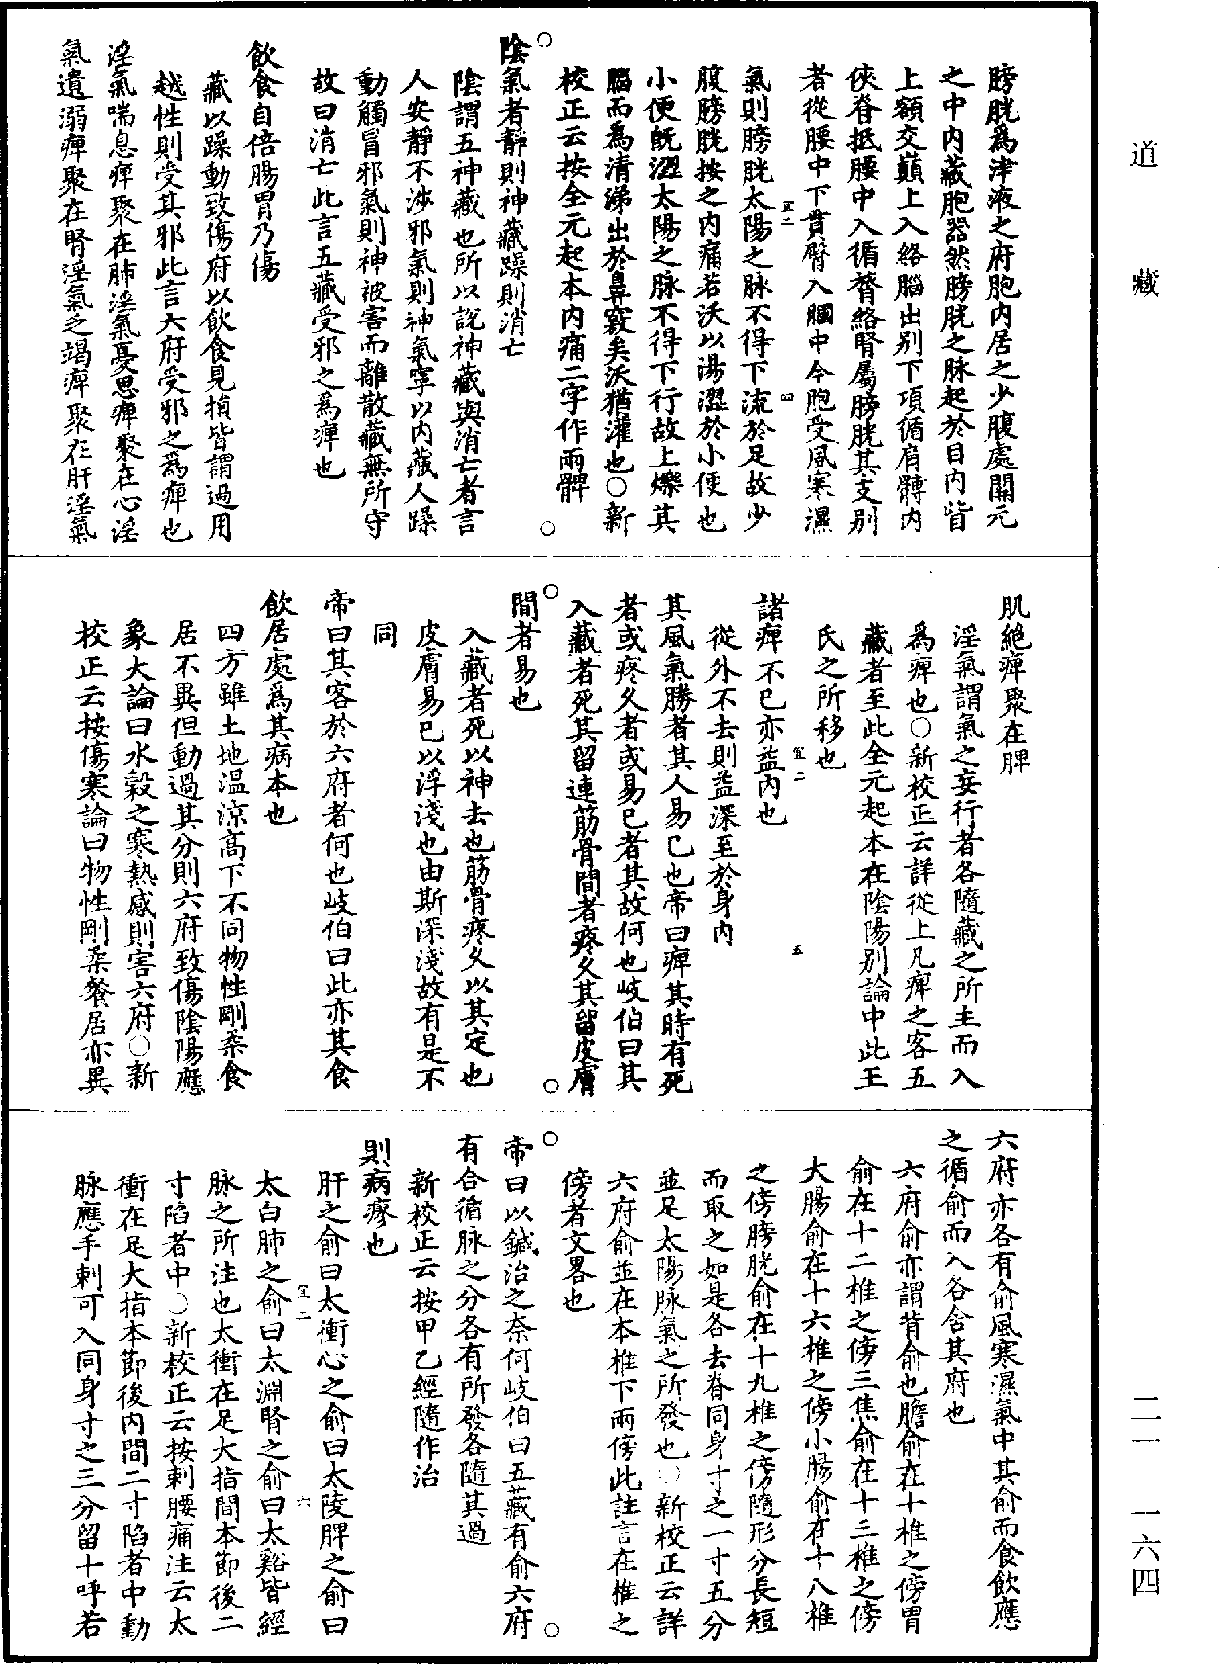 道藏
膀胱為津液之府胞內居之少腹處關元
之中內藏胞器然膀胱之脉起於目內眥
上額交巔上入絡腦出別下項循肩髆內
俠脊抵腰中入循膂絡腎屬膀胱其支別
者從腰中下貫臀入膕中今胞受風寒濕
氣則膀胱太陽之脉不得下流於足故少
腹膀胱按之內痛若沃以湯澀於小便也
小便既澀太陽之脉不得下行故上爍其
腦而為清涕出於鼻竅矣沃猶灌也○新
校正云按全元起本內痛二字作兩髀
陰氣者靜則神藏躁則消亡
陰謂五神藏也所以說神藏與消亡者言
人安靜不涉邪氣則神氣寧以內藏人躁
動觸冒邪氣則神被害而離散藏無所守
故曰消亡此言五藏受邪之為痺也
飲食自倍腸胃乃傷
藏以躁動致傷府以飲食見損皆謂過用
越性則受其邪此言六府受邪之為痺也
淫氣喘息痺聚在肺淫氣憂思痺聚在心淫
氣遺溺痺聚在腎淫氣乏竭痺聚在肝淫氣
肌絕痺聚在脾
淫氣謂氣之妄行者各隨藏之所主而入
為痺也○新校正云詳從上凡痺之客五
藏者至此全元起本在陰陽別論中此王
氏之所移也
諸痺不已亦益內也
從外不去則益深至於身內
其風氣勝者其人易已也帝曰痺其時有死
者或疼久者或易已者其故何也岐伯曰其
入藏者死其留連筋骨間者疼久其留皮膚
間者易也
入藏者死以神去也筋骨疼久以其定也
皮膚易已以浮淺也由斯深淺故有是不
同
帝曰其客於六府者何也岐伯曰此亦其食
飲居處為其病本也
四方雖土地溫涼高下不同物性剛柔食
居不異但動過其分則六府致傷陰陽應
象大論曰水穀之寒熱感則害六府○新
校正云按傷寒論曰物性剛柔餐居亦異
六府亦各有俞風寒濕氣中其俞而食飲應
之循俞而入各舍其府也
六府俞亦謂背俞也膽俞在十椎之傍胃
俞在十二椎之傍三焦俞在十三椎之傍
大腸俞在十六椎之傍小腸俞在十八椎
之傍膀胱俞在十九椎之傍隨形分長短
而取之如是各去脊同身寸之一寸五分
並足太陽脉氣之所發也○新校正云詳
六府俞並在本椎下兩傍此註言在椎之
傍者文畧也
帝曰以鍼治之奈何岐伯曰五藏有俞六府
有合循脉之分各有所發各隨其過
新校正云按甲乙經隨作治
則病瘳也
肝之俞曰太衝心之俞曰太陵脾之俞曰
太白肺之俞曰太淵腎之俞曰太谿皆經
脉之所注也太衝在足大指間本節後二
寸陷者中○新校正云按刺腰痛注云太
衝在足大指本節後內間二寸陷者中動
脉應手刺可入同身寸之三分留十呼若
二一 一六四